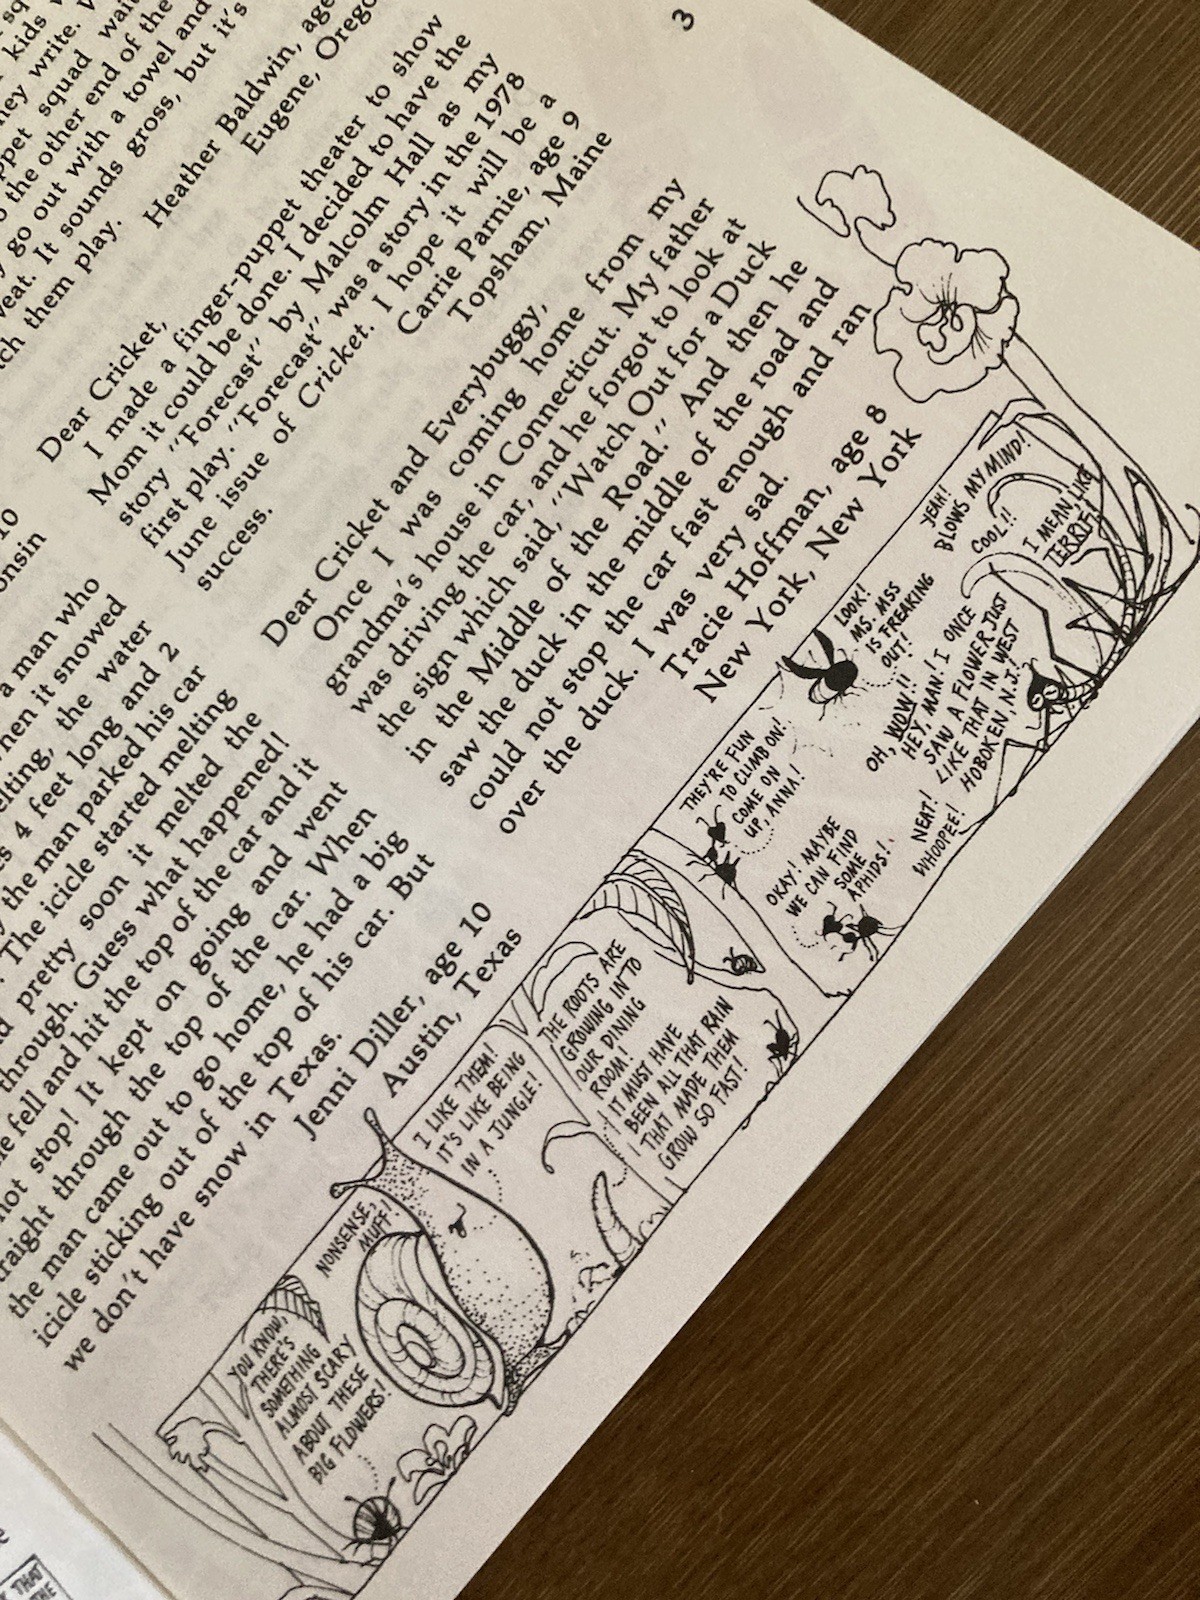 3
kids
they write.
squad
to the other end of the
go out with a towel and
It sounds gross, but it's
them play.
Heather Baldwin, age
Eugene,
Dear Cricket,
I made a finger-puppet theater to show
Mom it could be done. I decided to have the
story "Forecast" by Malcolm Hall as my
first play. "Forecast" was a story in the 1978
June issue of Cricket. I hope it will be a
success.
Carrie Parnie, age 9
Topsham, Maine
Dear Cricket and Everybuggy,
Once I was coming home from my
grandma's house in Connecticut. My father
was driving the car, and he forgot to look at
the sign which said, "Watch Out for a Duck
in the Middle of the Road." And then he
saw the duck in the middle of the road and
could not stop the car fast enough and ran
over the duck. I was very sad.
Tracie Hoffman, age 8
New York, New York
10
a man who
when it snowed
the water
4 feet long and 2
the man parked his car
The icicle started melting
pretty soon it melted the
through. Guess what happened!
fell and hit the top of the car and it
not stop! It kept on going and went
straight through the top of the car. When
the man came out to go home, he had a big
icicle sticking out of the top of his car. But
we don't have snow in Texas.
Jenni Diller, age 10
Austin, Texas
YOU KNOW,
THERE'S
SOMETHING
ALMOST SCARY
ABOUT THESE
BIG FLOWERS!
NONSENSE,
MUFF!
I LIKE THEM!
IT'S LIKE BEING
IN A JUNGLE!
THE ROOTS ARE
GROWING INTO
OUR DINING
ROOM!
IT MUST HAVE
BEEN ALL THAT RAIN
THAT MADE THEM
GROW SO FAST!
THEY'RE FUN
TO CLIMB ON!
COME ON
UP, ANNA!
OKAY! MAYBE
WE CAN FIND
SOME
APHIDS!
LOOK!
MS. MSS
IS FREAKING
OUT!
YEAH!
BLOWS MY MIND!
COOL!!
I MEAN, LIKE
TERRIF!
OH, WOW!!
HEY, MAN! I ONCE
SAW A FLOWER JUST
LIKE THAT IN WEST
HOBOKEN, N.J.!
NEAT!
WHOOPEE!
THAT
THE